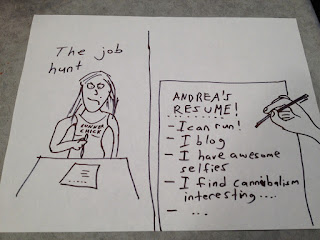 The job
hunt
RUNNER
CHICK
ANDREA'S
RESUME!
- I can run!
- I blog
- I have awesome
selfies
- I find cannibalism
interesting....
- ...